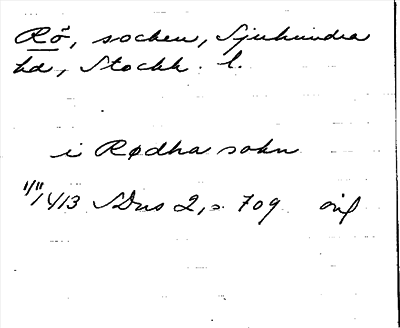 Rö, socken, Sjuhundra
hd, Stockh. l.
i Rødha sokn
1/11 1413 SDns 2, s. 709 orig